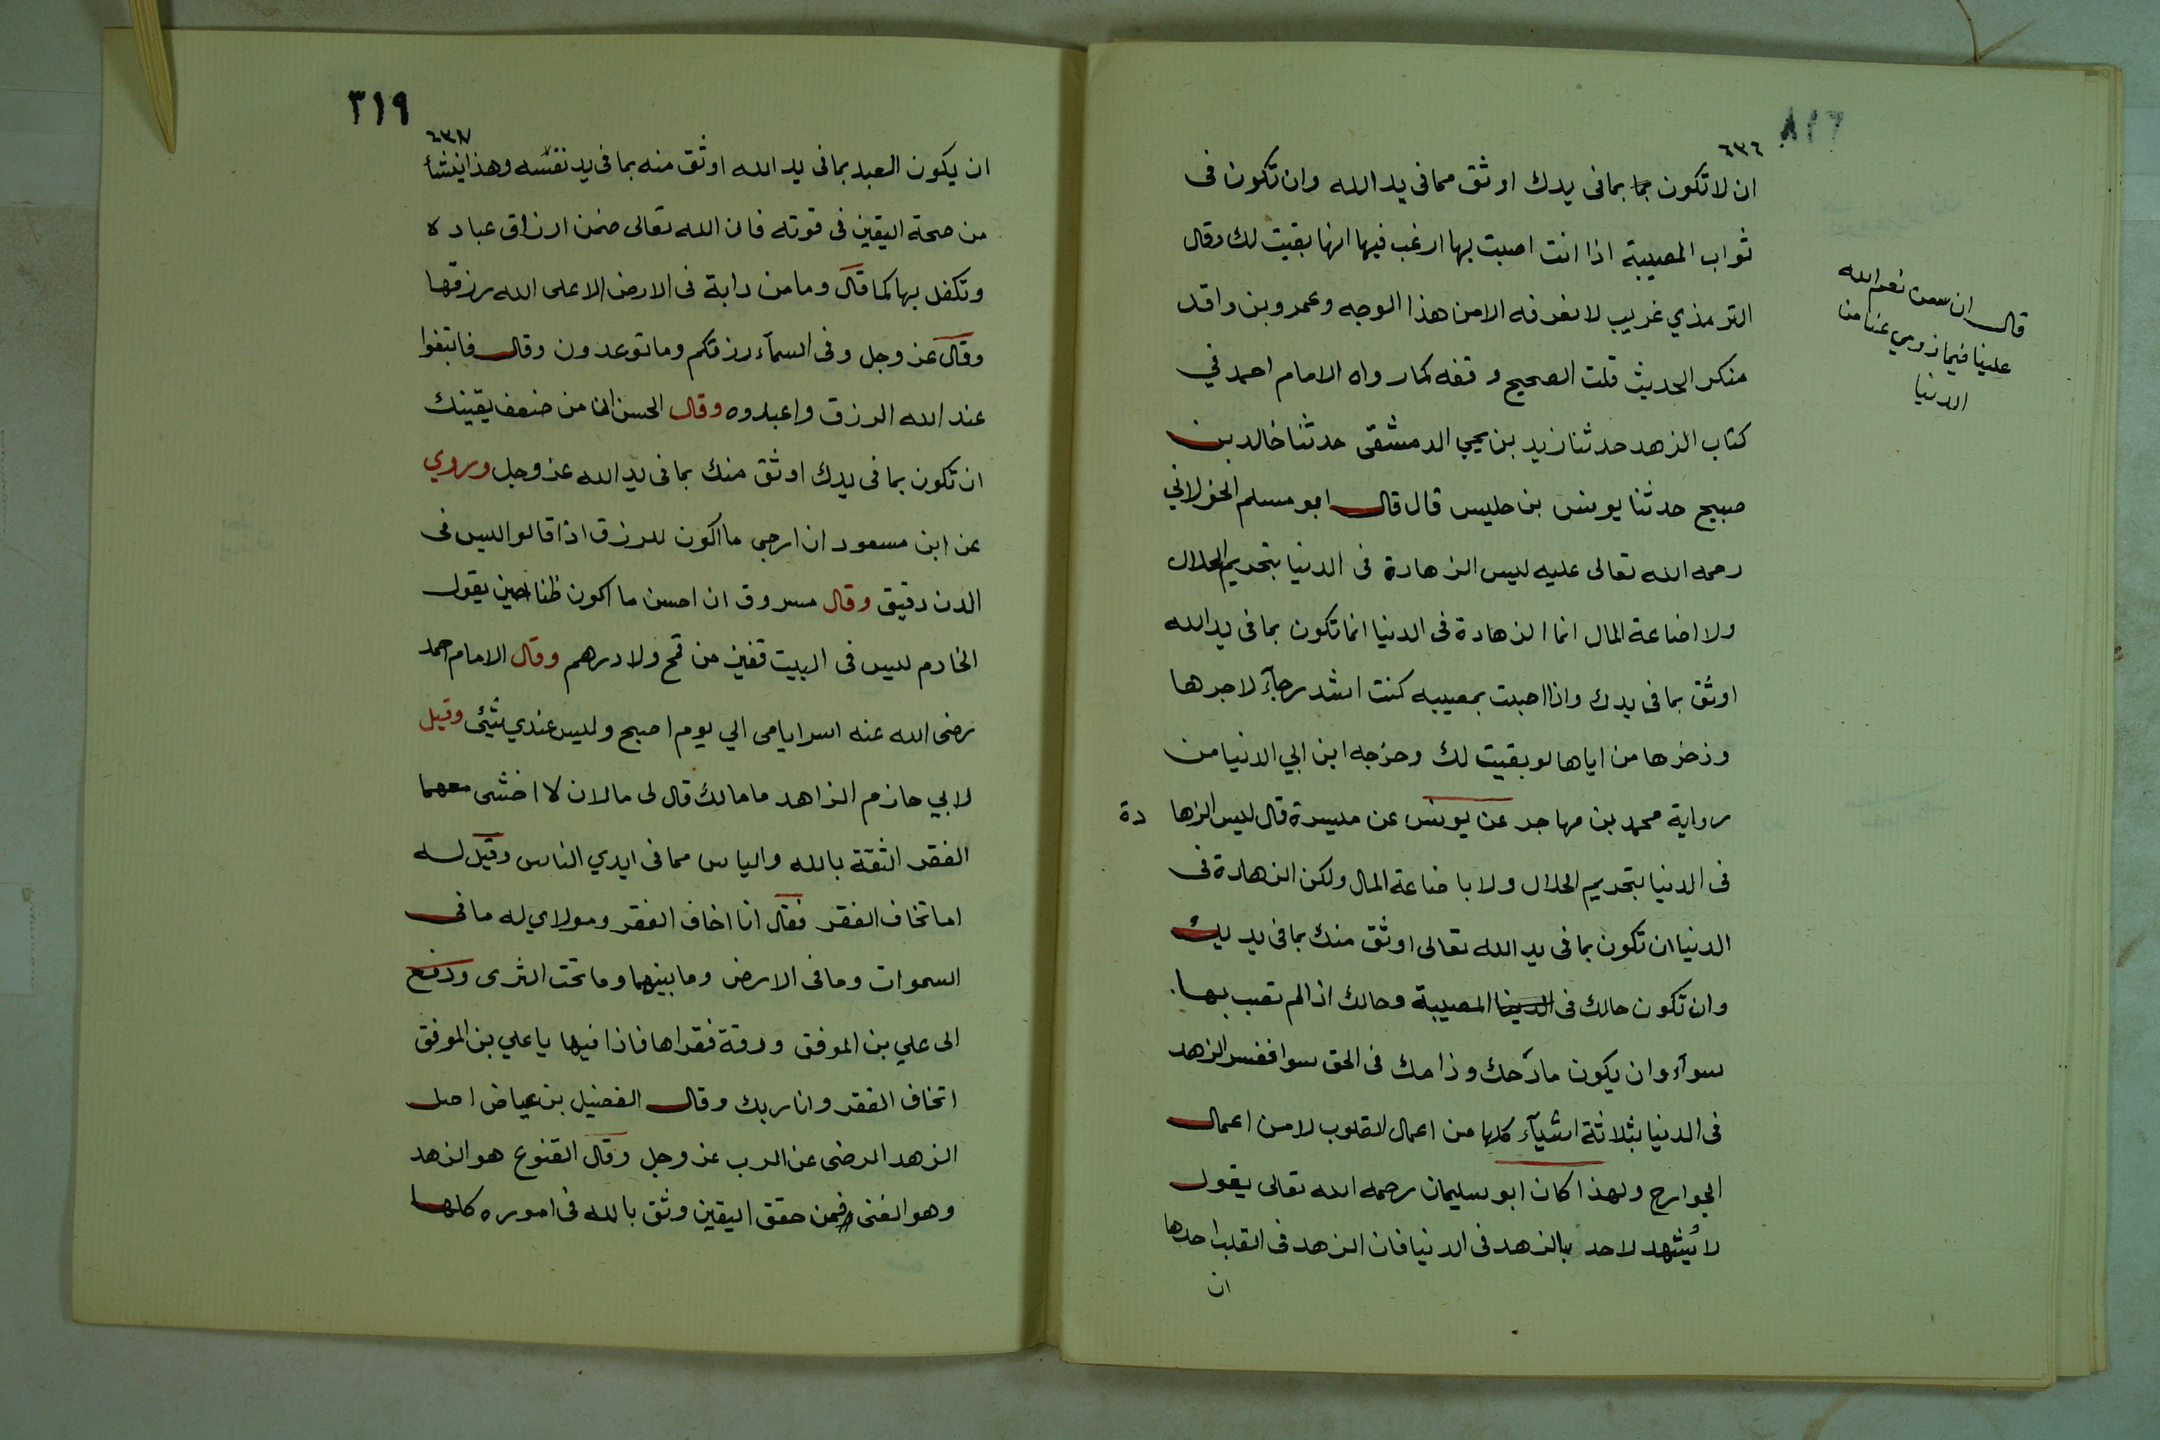 ٦٣٦
ان لا تكون بما فى يدك اوثق مما فى يد الله وان تكون فى
ثواب المصيبة اذا انت اصبت بها ارغب فيها انها بقيت لك وقال
الترمذي غريب لا نعرفه الا من هذا الوجه وعمرو بن واقد
منكر الحديث قلت الصحيح وقفه كما رواه الامام احمد في
كتاب الزهد حدثنا زيد بن يحيي الدمشقى حدثنا خالد بن
صبيح حدثنا يونس بن حليس قال قال ابو مسلم الخولاني
رحمه الله تعالى عليه ليس الزهادة فى الدنيا بتحريم الحلال
ولا اضاعة المال انما الزهادة فى الدنيا انما تكون بما فى يد الله
اوثق بما فى يدك واذا اصبت بمصيبه كنت اشد رجآء لاجرها
وذخرها من اياها لو بقيت لك وخرجه ابن ابي الدنيا من
رواية محمد بن مهاجر عن يونس عن ميسرة قال ليس الزها دة
فى الدنيا بتحريم الحلال ولا باضاعة المال ولكن الزهادة فى
الدنيا ان تكون بما فى يد الله تعالى اوثق منك بما فى يديك
وان تكون حالك فى المصيبة وحالك اذا لم تصب بها
سوآء وان يكون مادحك وذامك فى الحق سوا ففسر الزهد
فى الدنيا بثلاثة اشيآء كلها من اعمال القلوب لا من اعمال
الجوارح ولهذا كان ابو سليمان رحمه الله تعالى يقول
لا يُشهد لاحد بالزهد فى الدنيا فان الزهد فى القلب احدها
ان
قال ان من نعم الله
علينا فيما زوي عنا من
الدنيا
٣١٩
ان يكون العبد بما فى يد الله اوثق منه بما فى يد نفسه وهذا ينشأ
من صحة اليقين فى قوته فان الله تعالى ضمن ارزاق عباده
وتكفل بها كما قال وما من دابة فى الارض الا على الله رزقها
وقال عز وجل وفى السمآء رزقكم وما توعدون وقال فابتغوا
عند الله الرزق واعبدوه وقال الحسن ان من ضعف يقينك
ان تكون بما فى يدك اوثق منك بما فى يد الله عز وجل وروي
عن ابن مسعود ان ارجى ما اكون للرزق اذا قالوا ليس فى
الدن دقيق وقال مسروق ان احسن ما اكون ظنا حين يقول
الخادم ليس فى البيت قفيز من قمح ولا درهم وقال الامام احمد
رضى الله عنه اسر ايامى الي يوم اصبح وليس عندي شئ وقيل
لابي حازم الزاهد ما مالك قال لى مالان لا اخشى معهما
الفقر الثقة بالله والياس مما فى ايدي الناس وقيل له
اما تخاف الفقر فقال انا اخاف الفقر ومولاي له ما فى
السموات وما فى الارض وما بينهما وما تحت الثرى ودفع
الى علي بن الموفق ورقة فقراها فاذا فيها يا علي بن الموفق
اتخاف الفقر وانا ربك وقال الفضيل بن عياض اصل
الزهد الرضى عن الرب عز وجل وقال القنوع هو الزهد
وهو الغنى فمن حقق اليقين وثق بالله فى اموره كلها